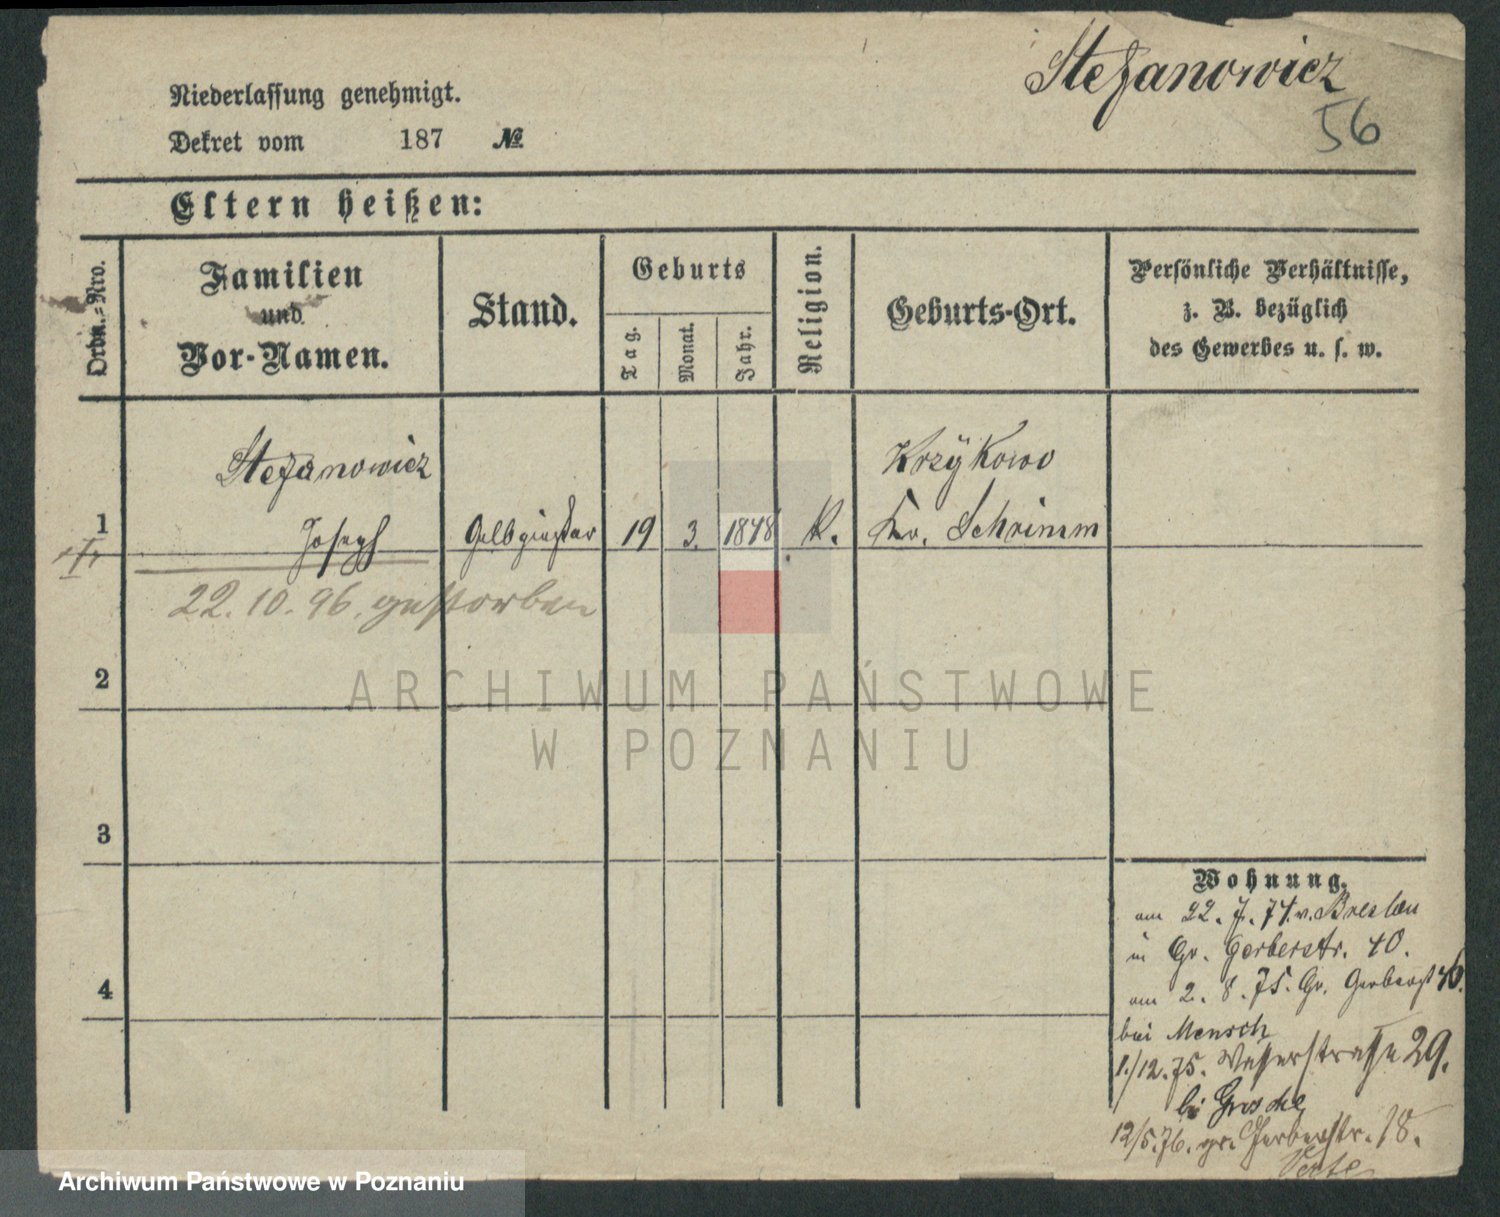 Stefanowicz
56
Niederlassung genehmigt.
Dekret vom 187 №
Eltern heißen:
Ordn.-Nro.
Familien
und
Vor-Namen.
Stand.
Geburts
Tag.
Monat.
Jahr.
Religion.
Geburts-Ort.
Persönliche Verhältnisse,
z. B. bezüglich
des Gewerbes u. s. w.
Stefanowicz Krzykowo
1 Joseph Gelbgießer 19 3. 1848 K. Kr. Schrimm
22.10.96. gestorben
2
ARCHIWUM PAŃSTWOWE
W POZNANIU
3
Wohnung.
am 22. 7. 74. v. Breslau
in Gr. Gerberstr. 40.
4
am 2. 8. 75. Gr. Gerberst 46.
bei Mensch
1./12.75. Wasserstraße 29.
bei
12/5.76. gr. Gerberstr. 18.
Verte
Archiwum Państwowe w Poznaniu